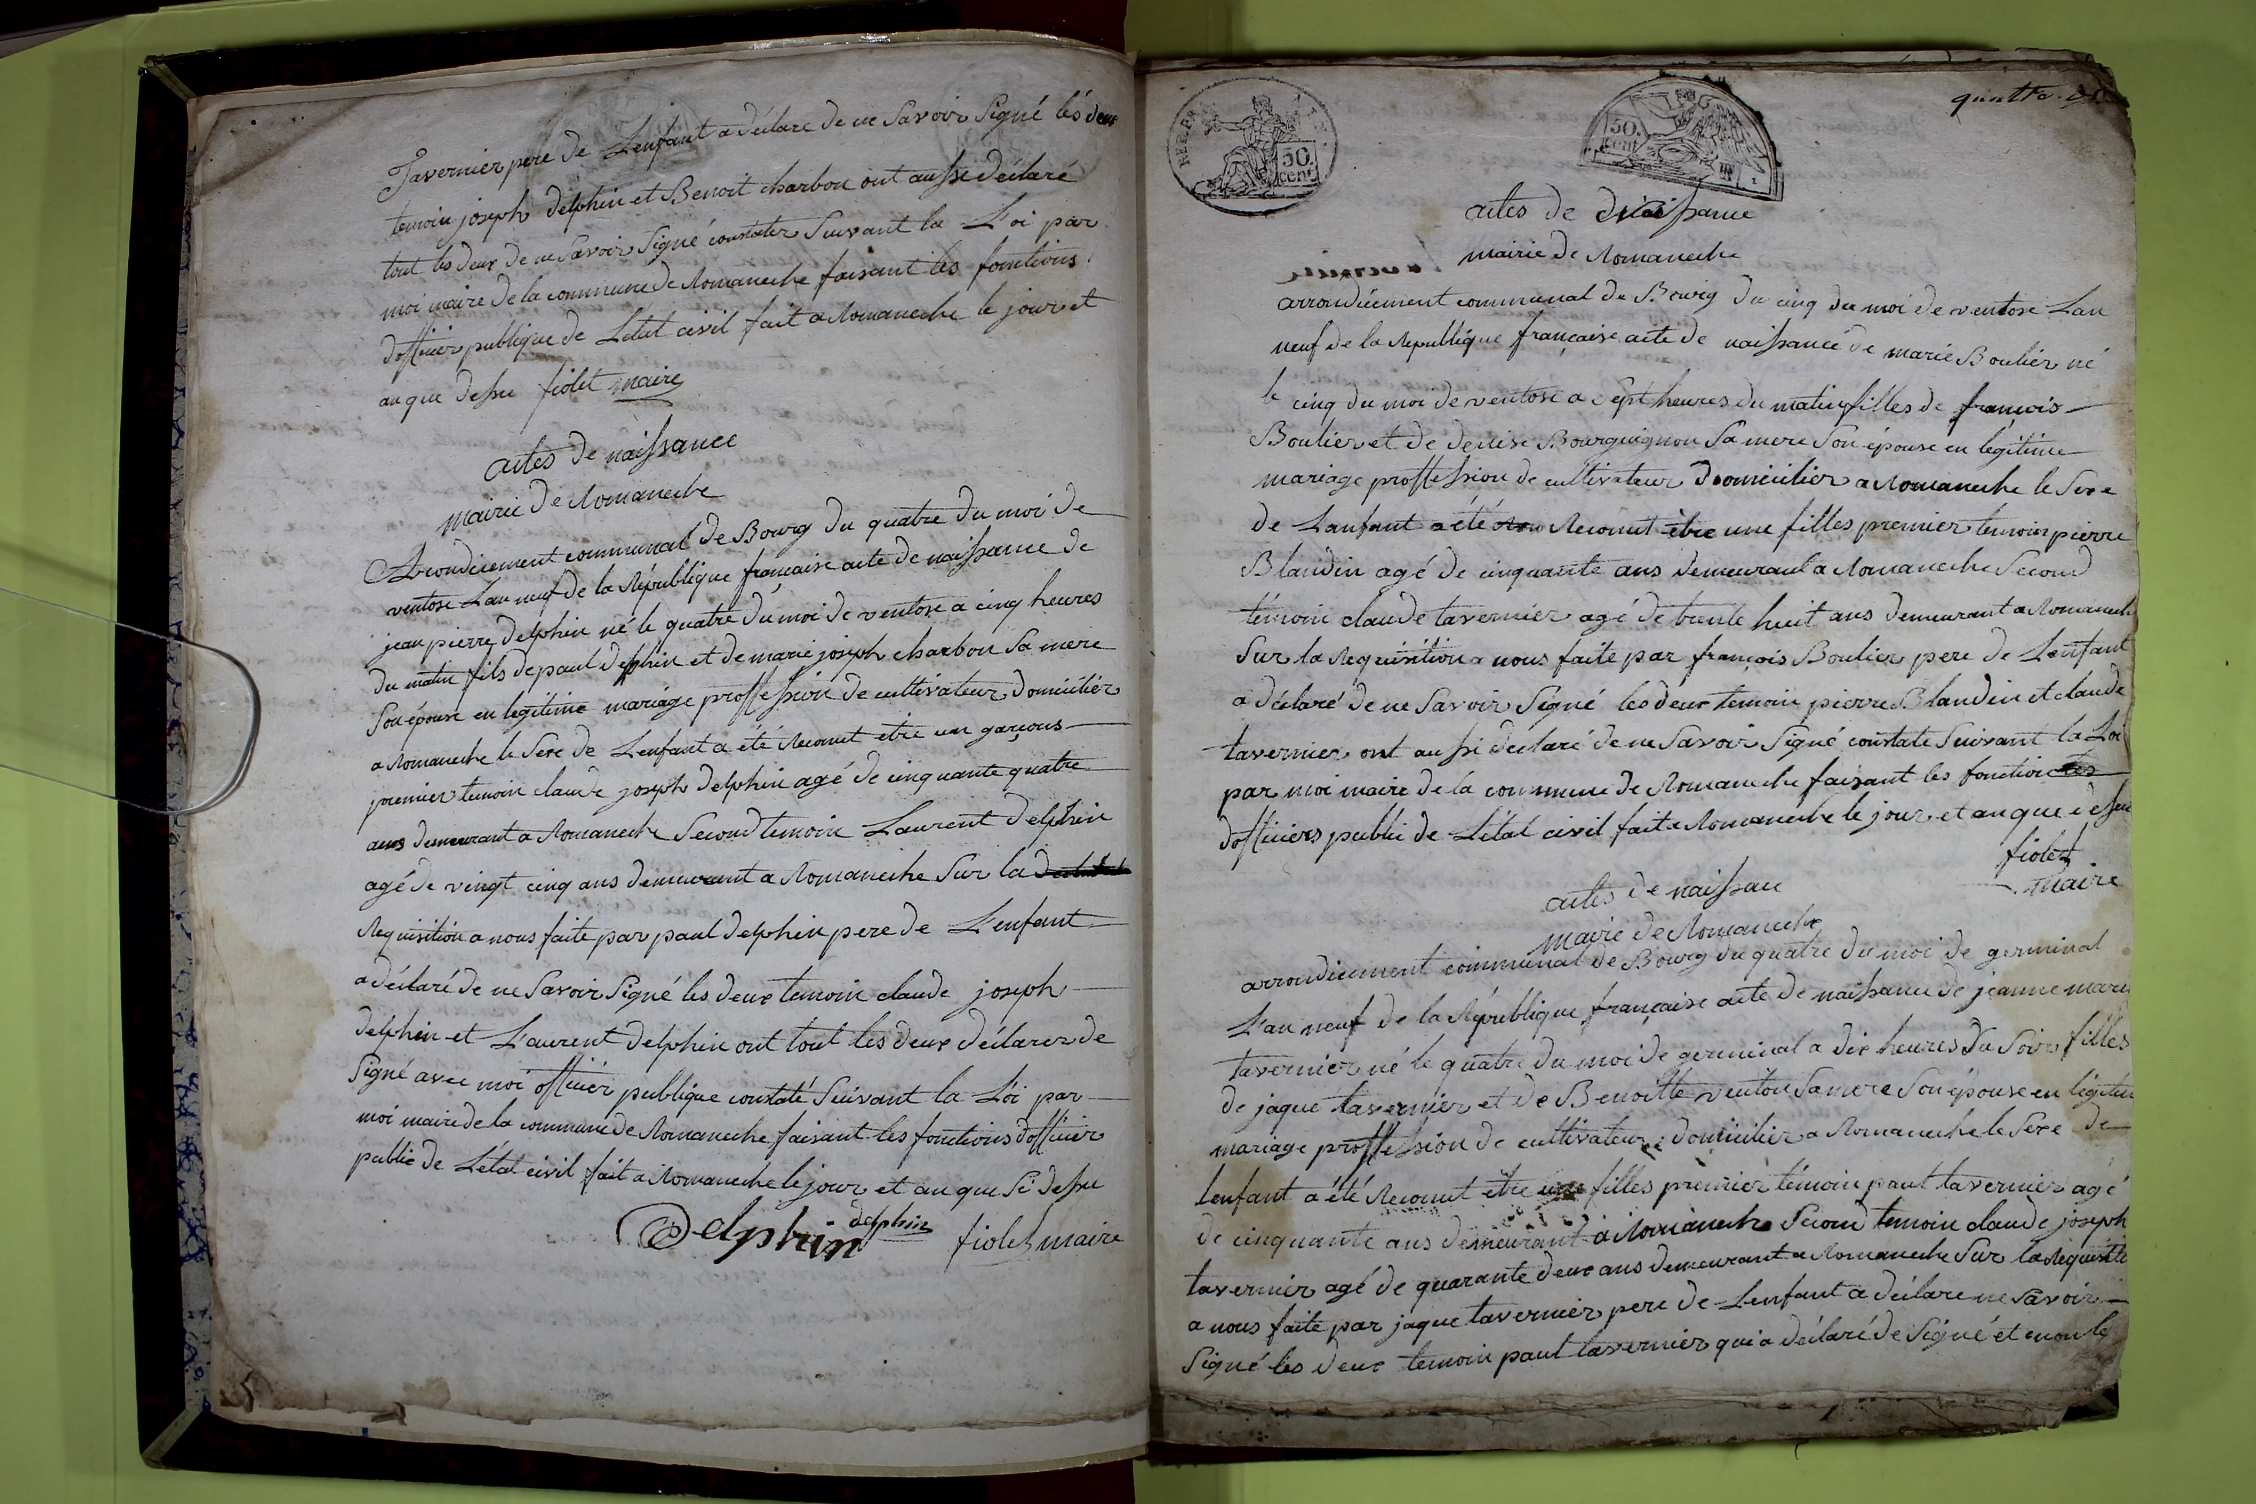 Tavernier pere de Lenfant a déclare de ne Savoir Signé lés deux
temoin joseph delphin et Benoit charbon ont aussi déclaré
tout les deux de ne Savoir Signé constater Suivant la Loi par
moi maire de la commune de Romaneche faisant les fonctions
dofficier publique de Létat civil fait a Romaneche le jour et
an que dessu fiolet maire
actes de naissance
mairie de Romaneche
Arrondicement communal de Bourg du quatre du moi de
ventose Lan neuf de la République française acte de naissance de
jean pierre delphin né le quatre du moi de ventose a cinq heures
du matin fils de paul delphin et de marie joseph charbon Sa mere
Son épouse en legitime mariage proffession de cultivateur domicilier
a Romaneche le Sexe de Lenfant a été Reconut etre un garçons
premier temoin claude joseph delphin agé de cinquante quatre
ans demeurant a Romaneche Second temoin Laurent delphin
agé de vingt cinq ans demeurant a Romaneche Sur la
Requisition a nous faite par paul delphin pere de Lenfant
a déclaré de ne Savoir Signé les deux temoin claude joseph
delphin et Laurent delphin ont tout les deux déclarer de
Signé avec moi officier publique constaté Suivant la Loi par
moi maire de la commune de Romaneche faisant les fonctions dofficier
public de Létat civil fait a Romaneche le jour et an que Si dessu
Delphin delphin fiolet maire
quatre
REP. FRA
50. cent
50. cent
actes de naissance
mairie de Romaneche
arrondicement communal de Bourg du cinq du moi de ventose Lan
neuf de la République française acte de naissance de marie Boulier né
le cinq du moi de ventose a Sept heures du matin filles de françois
Boulier et de denise Bourguignon Sa mere Son épouse en légitime
mariage proffession de cultivateur domicilier a Romaneche le Sexe
de Lanfant a été Reconut être une filles premier temoin pierre
Blandin agé de cinquante ans demeurant a Romaneche Second
témoin claude tavernier agé de trente huit ans demeurant a Romaneche
Sur la Requisition a nous faite par françois Boulier pere de Lenfant
a déclaré de ne Savoir Signé les deux temoin pierre Blandin et claude
tavernier ont aussi declaré de ne Savoir Signé constate Suivant la Loi
par moi maire de la commune de Romaneche faisant les fonctions
dofficiers public de Létat civil fait a Romaneche le jour et an que dessu
fiolet
maire
actes de naissan
mairie de Romaneche
arrondicement communal de Bourg du quatre du moi de germinal
Lan neuf de la République française acte de naissance de jeanne marie
tavernier né le quatre du moi de germinal a dix heures du Soir filles
de jaque tavernier et de Benoitte venton Sa mere Son épouse en légitim
mariage proffession de cultivateur domicilier a Romaneche le Sexe de
lenfant a été Reconut etre une filles premier témoin paul tavernier agé
de cinquante ans demeurant a Romaneche Second temoin claude joseph
tavernier agé de quarante deux ans demeurant a Romaneche Sur la Requisitio
a nous faite par jaque tavernier pere de Lenfant a déclare ne Savoir
Signé les deux temoin paul tavernier qui a déclaré de Signé et non le